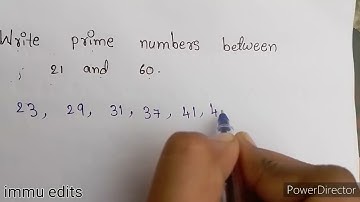 Write prime numbers between
; 21 and 60.
23, 29, 31, 37, 41, 4
immu edits
PowerDirector